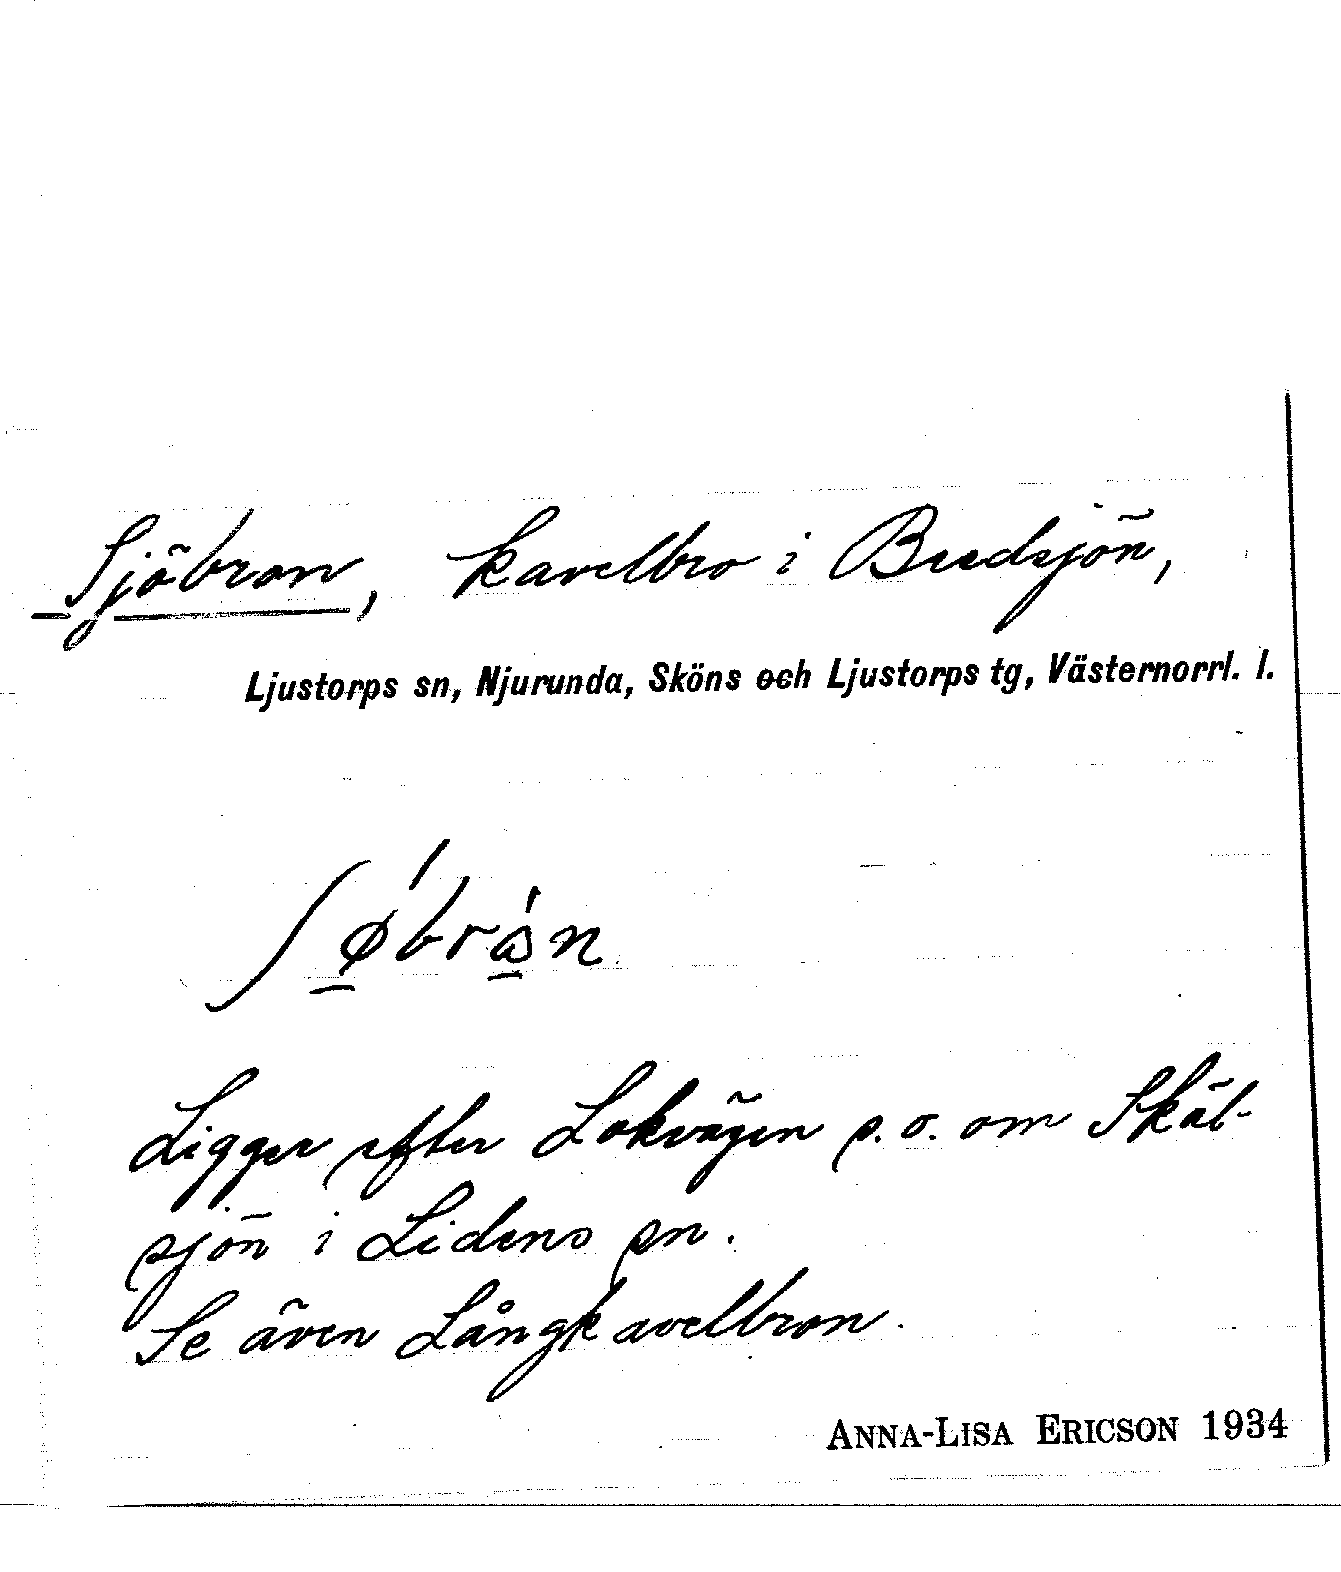 Sjöbron, kavelbro i Bredsjön,
Ljustorps sn, Njurunda, Sköns och Ljustorps tg, Västernorrl. l.
Ligger efter Lokvägen s.o. om Skäl-
sjön i Lidens sn.
Se även Långkavelbron.
ANNA-LISA ERICSON 1934